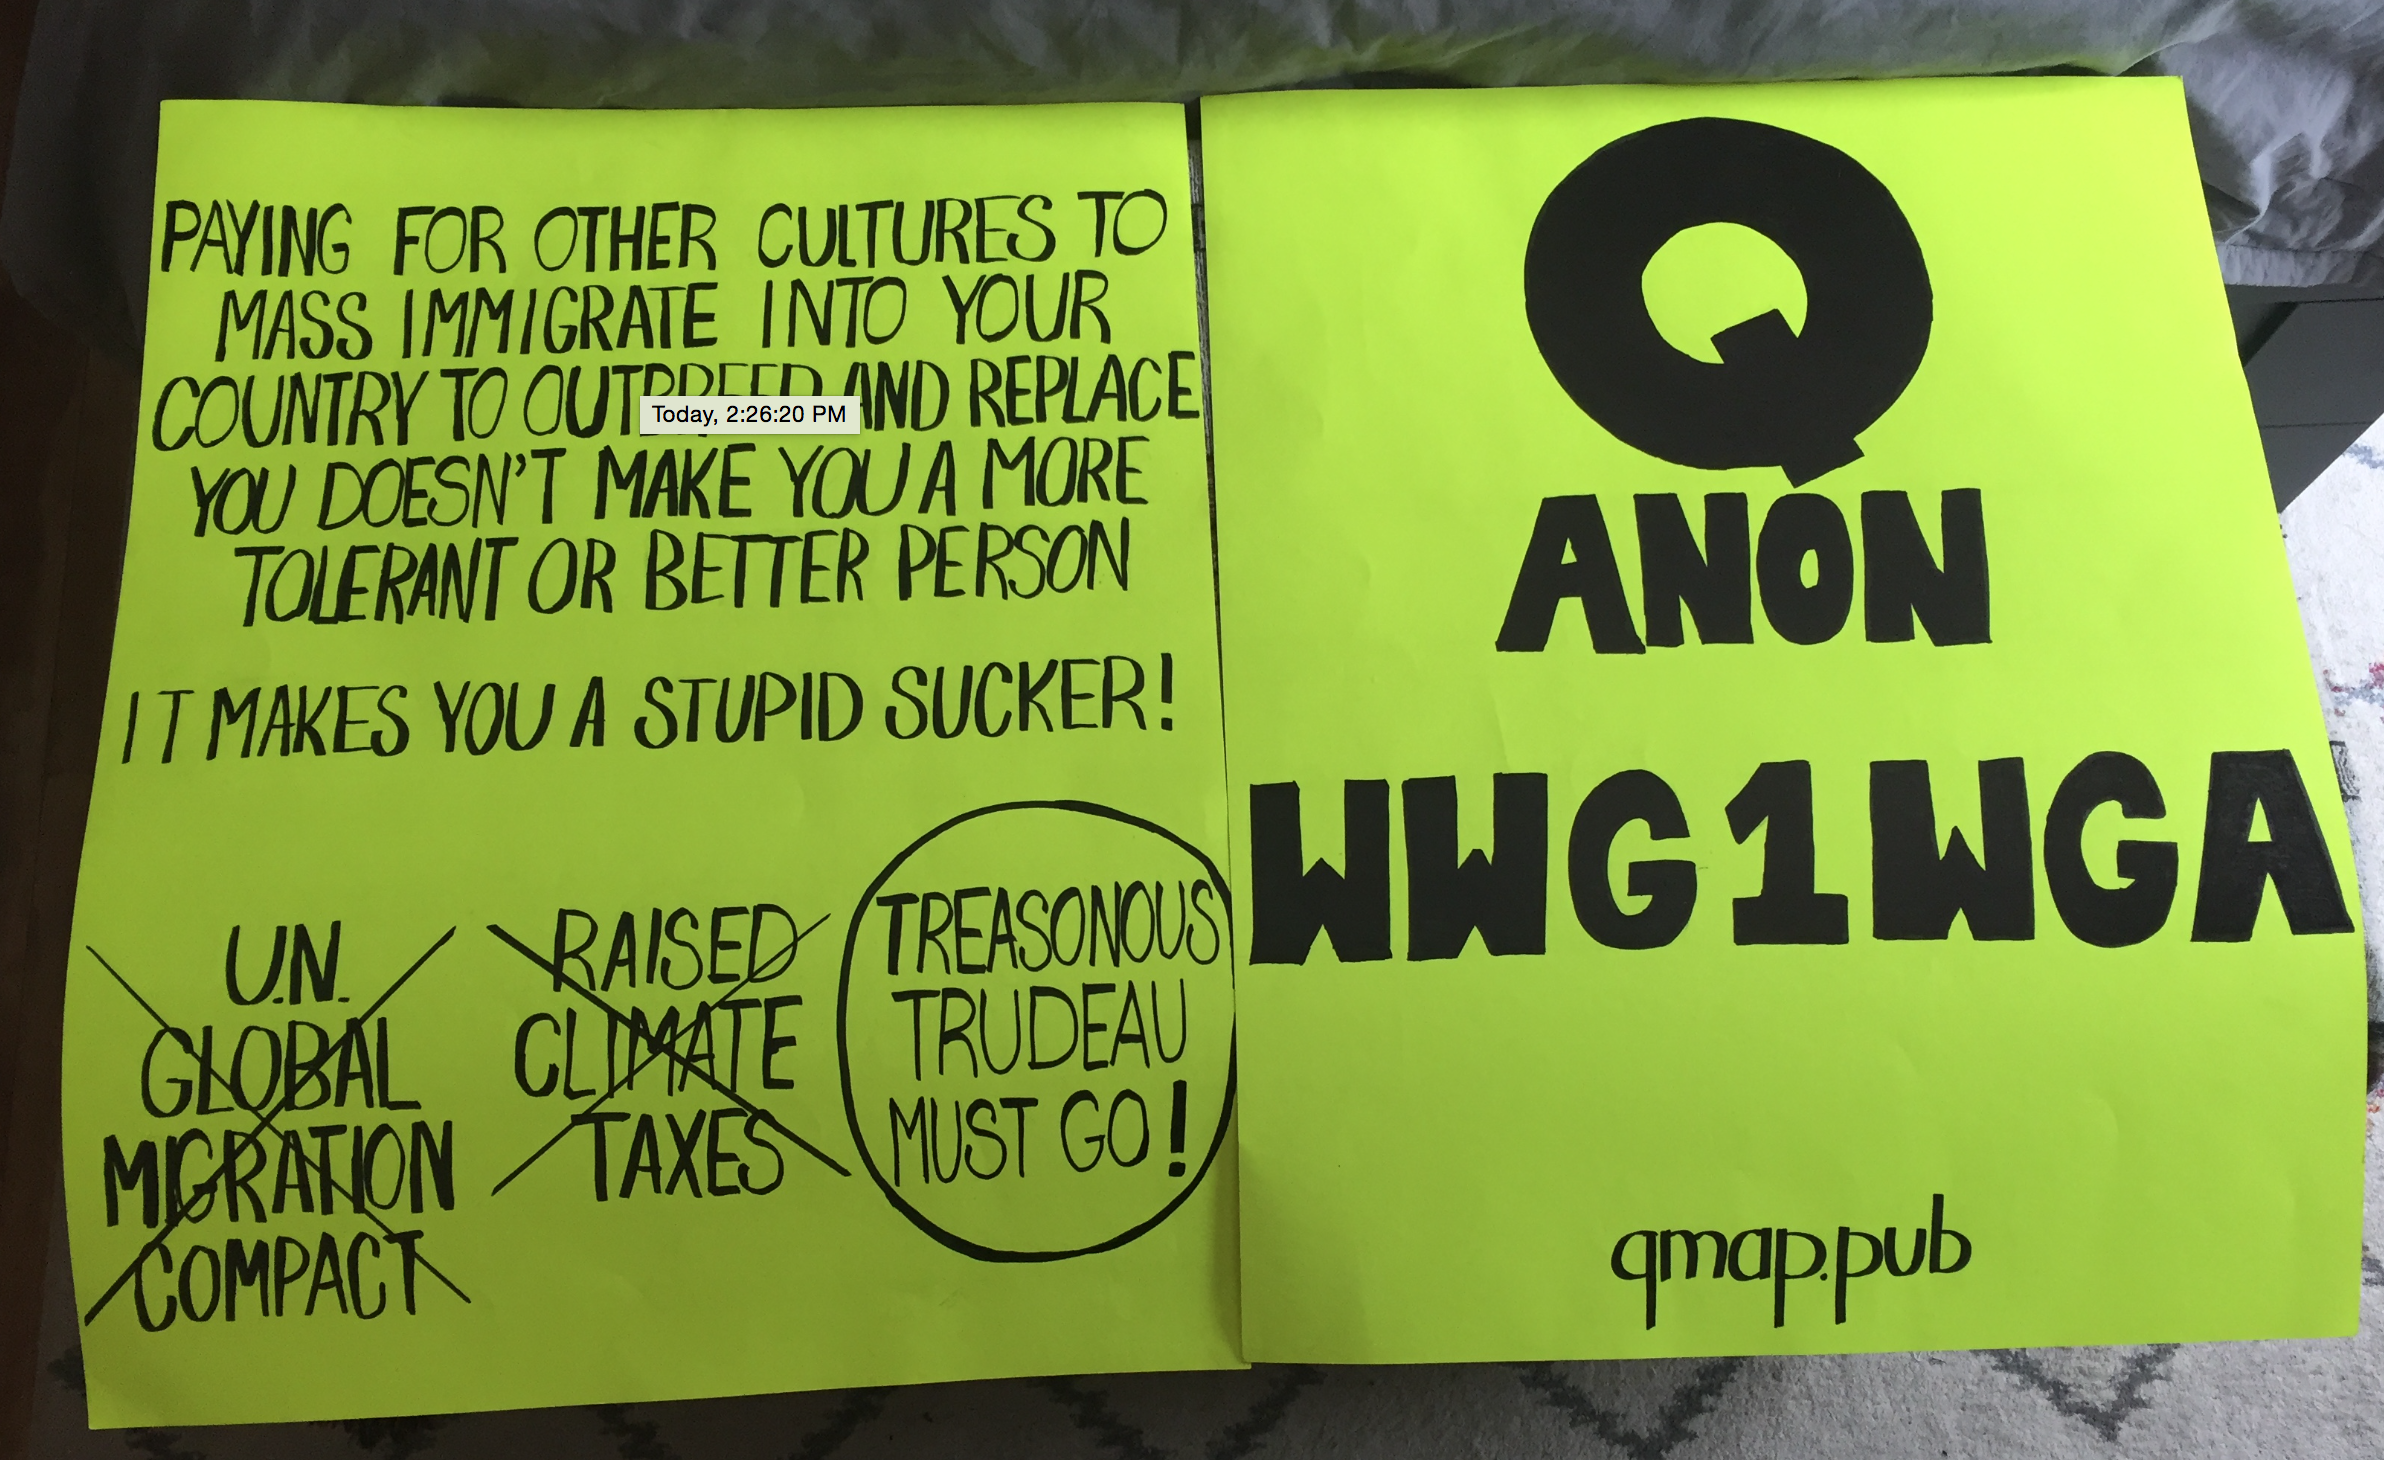 PAYING FOR OTHER CULTURES TO
MASS IMMIGRATE INTO YOUR
COUNTRY TO OUTBREED AND REPLACE
Today, 2:26:20 PM
YOU DOESN'T MAKE YOU A MORE
TOLERANT OR BETTER PERSON
IT MAKES YOU A STUPID SUCKER!
U.N.
GLOBAL
MIGRATION
COMPACT
RAISED
CLIMATE
TAXES
TREASONOUS
TRUDEAU
MUST GO!
Q
ANON
WWG1WGA
qmap.pub